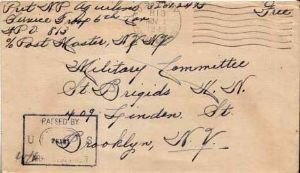 Pvt N.P. Aguilina
Service Group 6th
A.P.O. 813
c/o Post Master, N.Y. N.Y.
Free
Military Committee
St. Brigids H. N.
409 Linden St.
Brooklyn, N. Y.
PASSED BY
U S